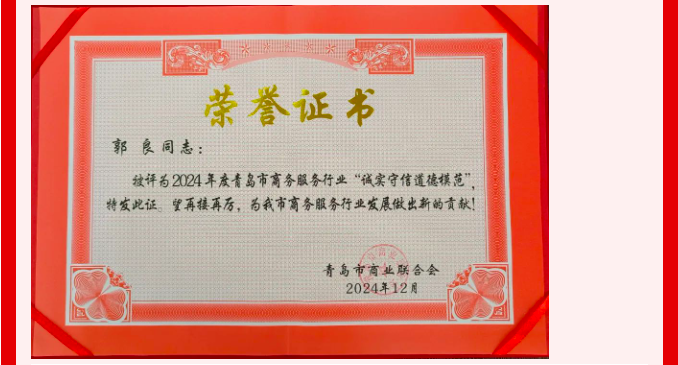 荣誉证书
郭良同志:
被评为2024年度青岛市商务服务行业“诚实守信道德模范”,
特发此证。望再接再厉,为我市商务服务行业发展做出新的贡献!
青岛市商业联合会
2024年12月